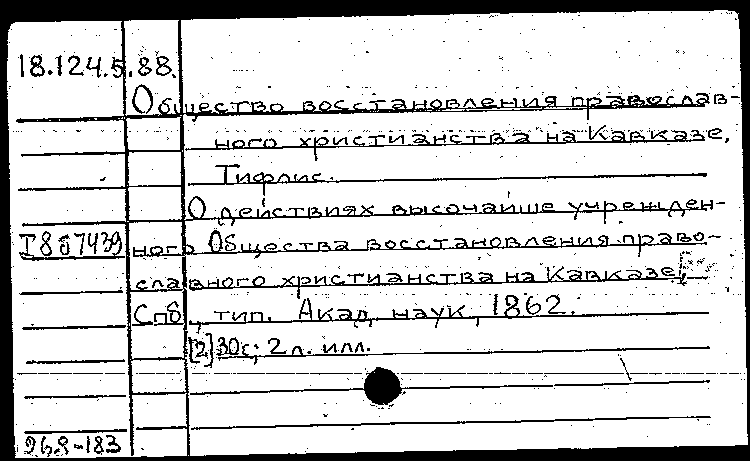 18.124.5.88.
Общество восстановления православ-
ного христианства на Кавказе,
Тифлис.
О действиях высочайше учрежден-
I 857439 ного Общества восстановления право-
славного христианства на Кавказе.
Спб, тип. Акад. наук, 1862.
[2] 30с; 2 л. илл.
268-183